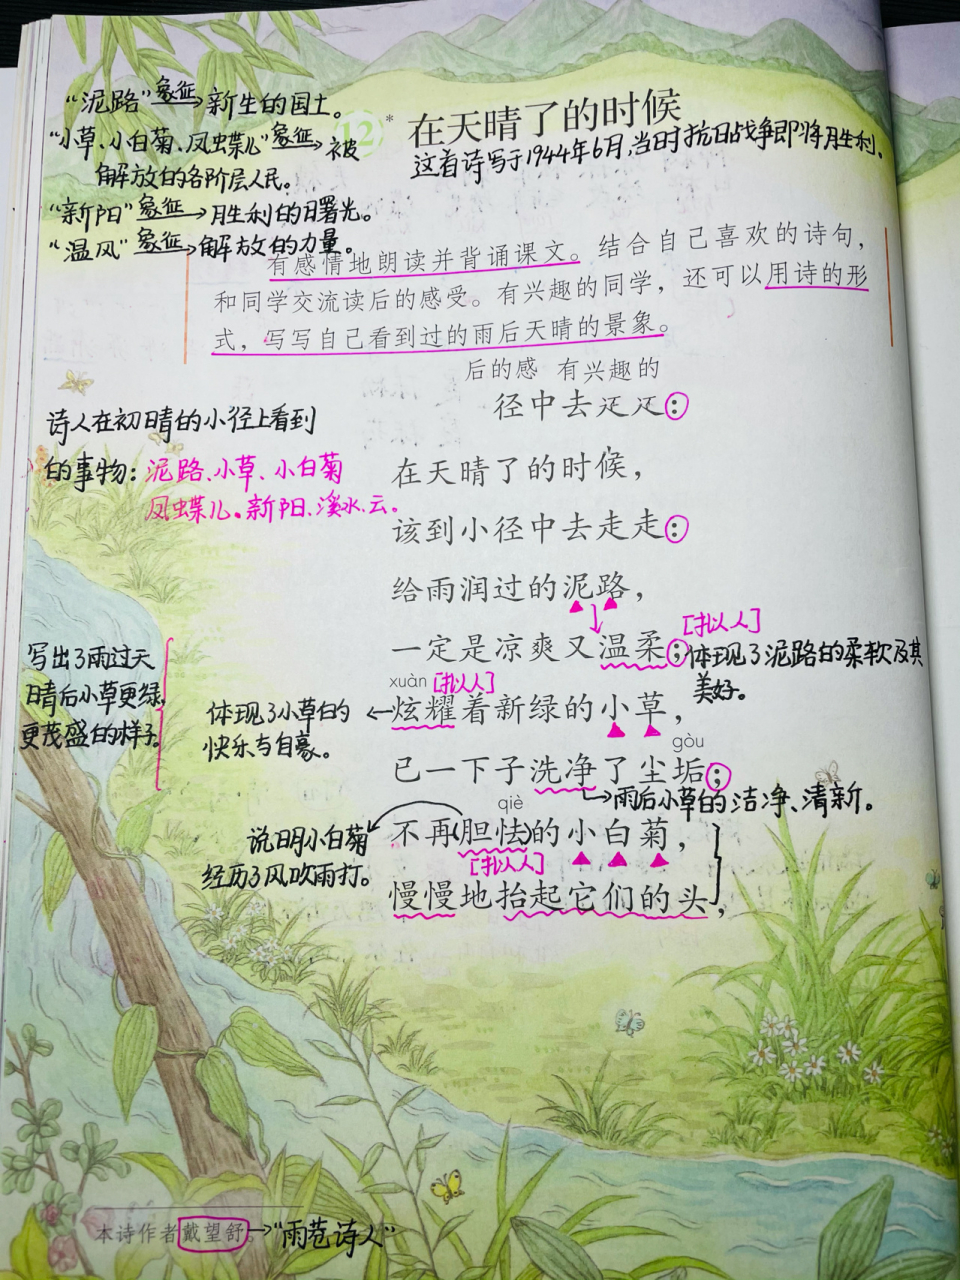 “泥路”象征→新生的国土。
“小草、小白菊、凤蝶儿”象征→被
解放的各阶层人民。
“新阳”象征→胜利的曙光。
“温风”象征→解放的力量。
12* 在天晴了的时候
这首诗写于1944年6月,当时抗日战争即将胜利。
有感情地朗读并背诵课文。结合自己喜欢的诗句,
和同学交流读后的感受。有兴趣的同学,还可以用诗的形
式,写写自己看到过的雨后天晴的景象。
后的感 有兴趣的
径中去
诗人在初晴的小径上看到
的事物:泥路、小草、小白菊
凤蝶儿。新阳、溪水、云。
在天晴了的时候,
该到小径中去走走:
给雨润过的泥路,
[拟人]
一定是凉爽又温柔;
体现了泥路的柔软及其
美好。
写出了雨过天
晴后小草更绿,
更茂盛的样子。
xuàn [拟人]
炫耀着新绿的小草,
体现了小草的
快乐与自豪。
gòu
已一下子洗净了尘垢;
→雨后小草的洁净、清新。
qiè
不再(胆怯)的小白菊,
说明小白菊
经历了风吹雨打。
[拟人]
慢慢地抬起它们的头,
本诗作者戴望舒。→“雨巷诗人”